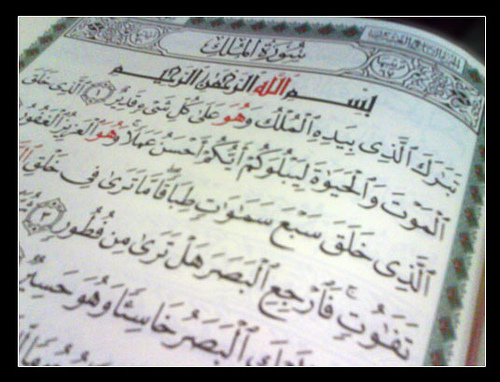 سُورَةُ الْمُلْكِ
بِسْمِ اللَّهِ الرَّحْمَٰنِ الرَّحِيمِ
تَبَٰرَكَ ٱلَّذِى بِيَدِهِ ٱلْمُلْكُ وَهُوَ عَلَىٰ كُلِّ شَىْءٍ قَدِيرٌ ١ ٱلَّذِى خَلَقَ
ٱلْمَوْتَ وَٱلْحَيَوٰةَ لِيَبْلُوَكُمْ أَيُّكُمْ أَحْسَنُ عَمَلًا وَهُوَ ٱلْعَزِيزُ ٱلْغَفُورُ
ٱلَّذِى خَلَقَ سَبْعَ سَمَٰوَٰتٍ طِبَاقًا مَّا تَرَىٰ فِى خَلْقِ
تَفَٰوُتٍ فَٱرْجِعِ ٱلْبَصَرَ هَلْ تَرَىٰ مِن فُطُورٍ ٣
ٱلْبَصَرُ خَاسِئًا وَهُوَ حَسِيرٌ